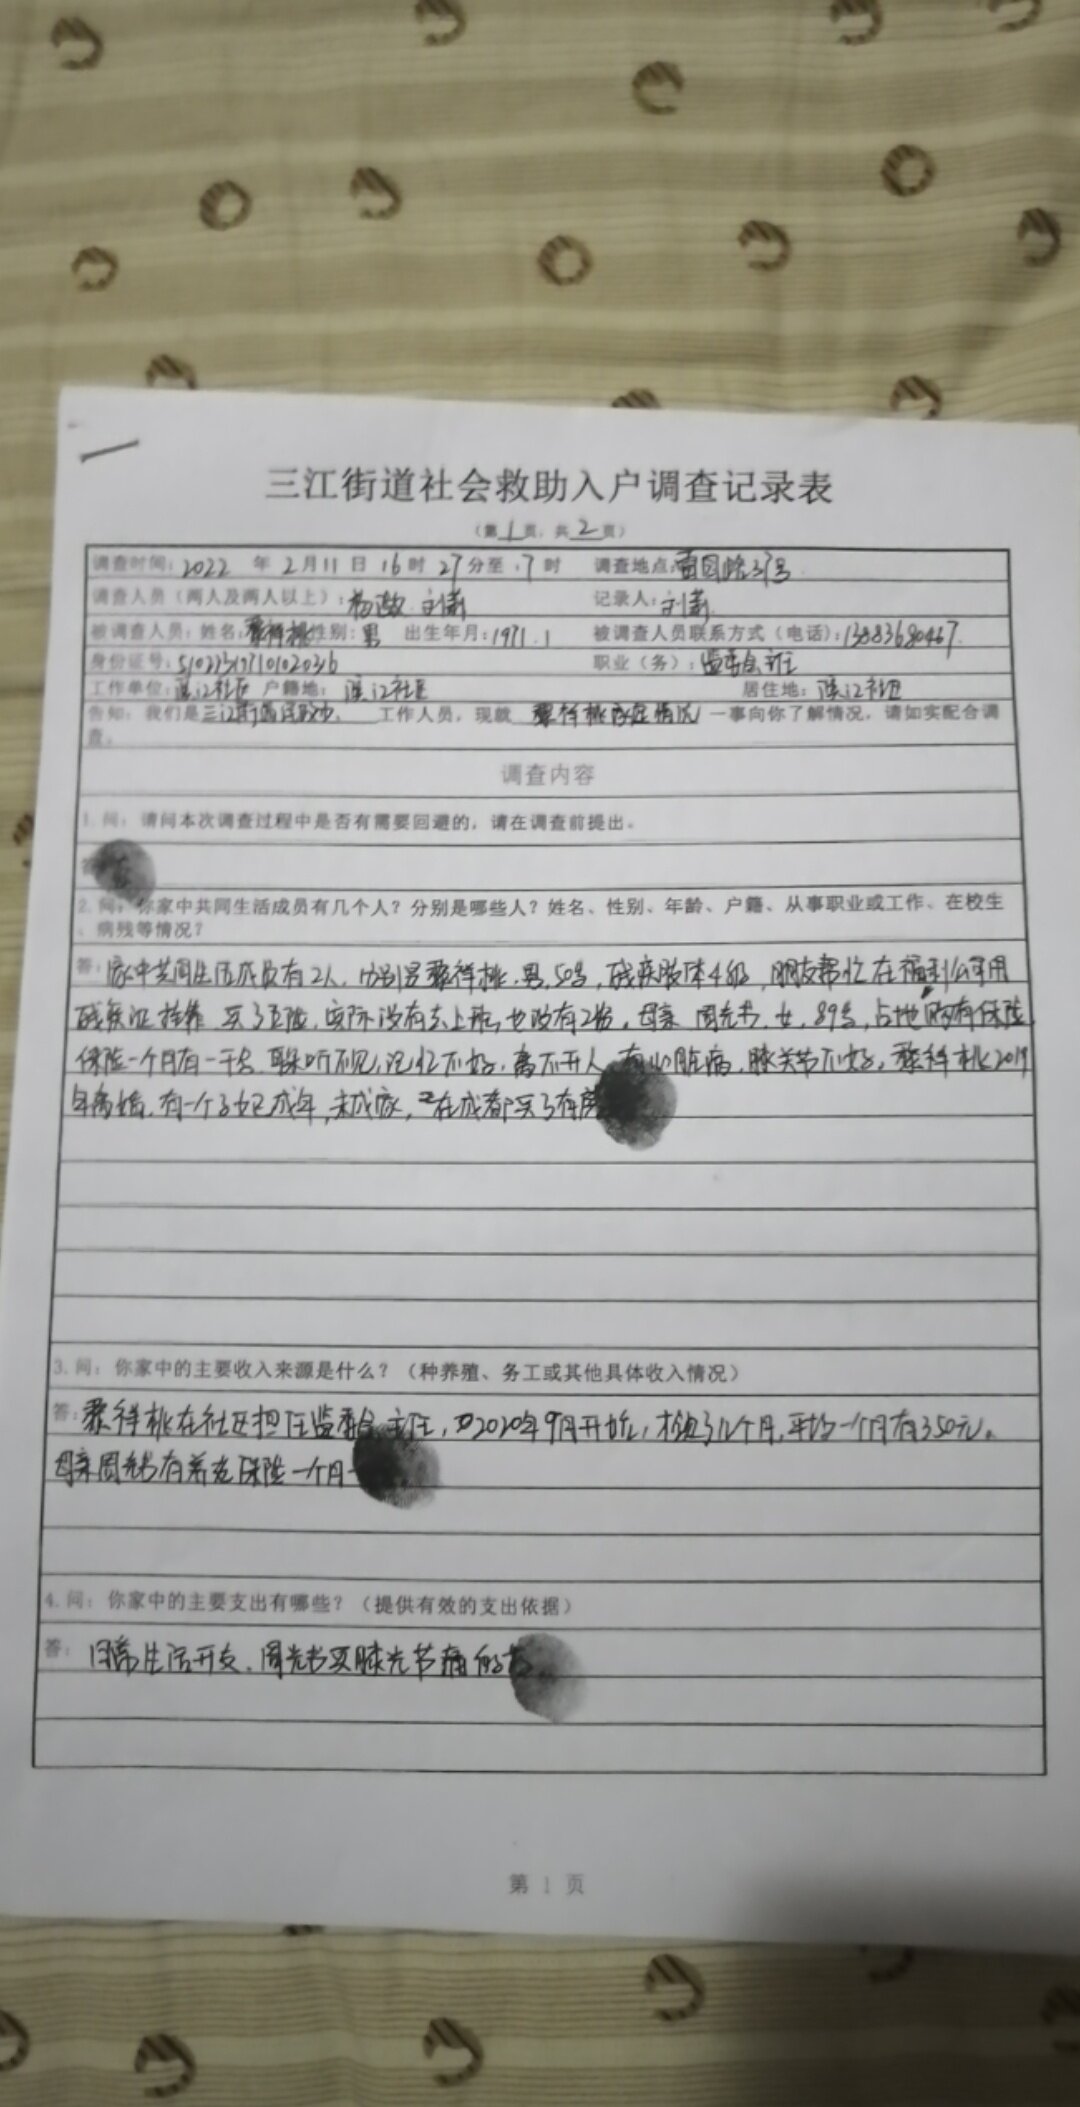 三江街道社会救助入户调查记录表
(第1页，共2页)
调查时间：2022 年 2月11日 16时 27分至17时 调查地点：
调查人员（两人及两人以上）： 记录人：
被调查人员：姓名： 性别：男 出生年月：1971.1 被调查人员联系方式（电话）：13883680467
身份证号： 职业（务）：监委会主任
工作单位：滨江社区 户籍地：滨江社区 居住地：滨江社区
告知：我们是三江街道民政办 工作人员，现就 祥桃家庭情况 一事向你了解情况，请如实配合调
查。
调查内容
1.问：请问本次调查过程中是否有需要回避的，请在调查前提出。
2.问：你家中共同生活成员有几个人？分别是哪些人？姓名、性别、年龄、户籍、从事职业或工作、在校生
、病残等情况？
答：家中共同生活成员有2人，分别是 祥桃，男，50岁，残疾肢体4级，朋友帮忙在福利公司用
残疾证挂靠 买了五险，实际没有去上班，也没有工资，母亲 周光书，女，89岁，占地 购有保险
保险一个月有一千多，耳朵听不见，记忆不好，离不开人，有心脏病，膝关节不好， 祥桃2019
年离婚，有一个子女已成年，未成家，已在成都买了有房
3.问：你家中的主要收入来源是什么？（种养殖、务工或其他具体收入情况）
答： 祥桃在社区担任监委会主任，2020年9月开始， 几个月，平均一个月有350元。
母亲周光书有养老保险一个月
4.问：你家中的主要支出有哪些？（提供有效的支出依据）
答：日常生活开支，周光书买膝关节痛的
第 1 页